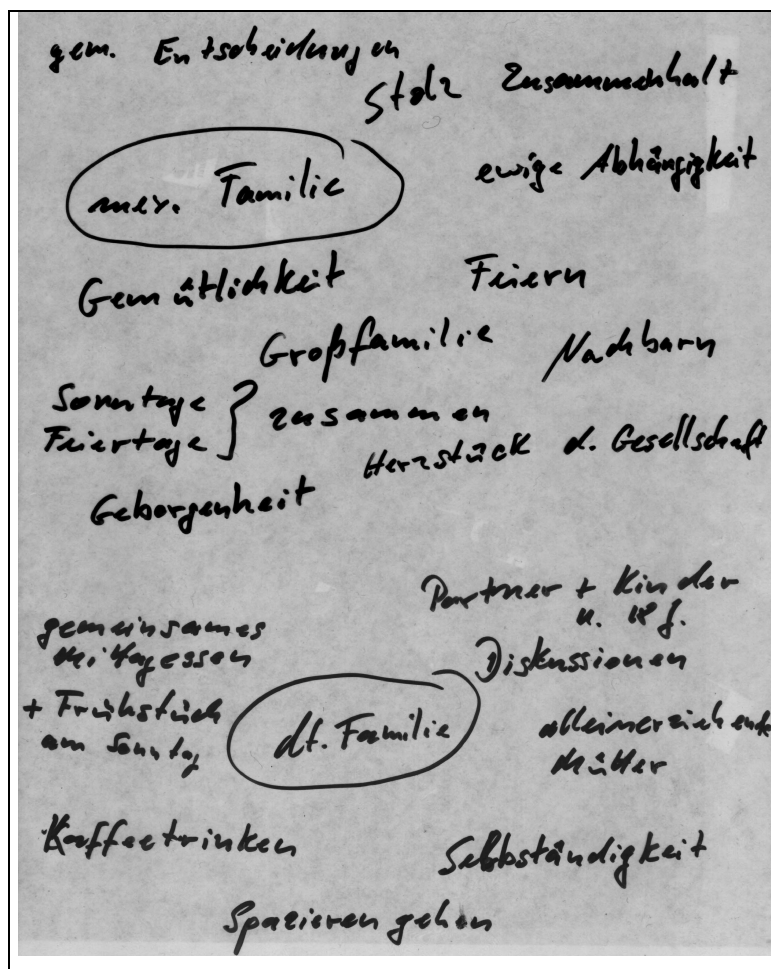 gem. Entscheidungen
Stolz
Zusammenhalt
mex. Familie
ewige Abhängigkeit
Gemütlichkeit
Feiern
Großfamilie
Nachbarn
Sonntage
Feiertage } zusammen
Herzstück d. Gesellschaft
Geborgenheit
Partner + Kinder
u. 18 J.
gemeinsames
Mittagessen
+ Frühstück
am Sonntag
Diskussionen
dt. Familie
alleinerziehende
Mütter
Kaffeetrinken
Selbständigkeit
Spazieren gehen